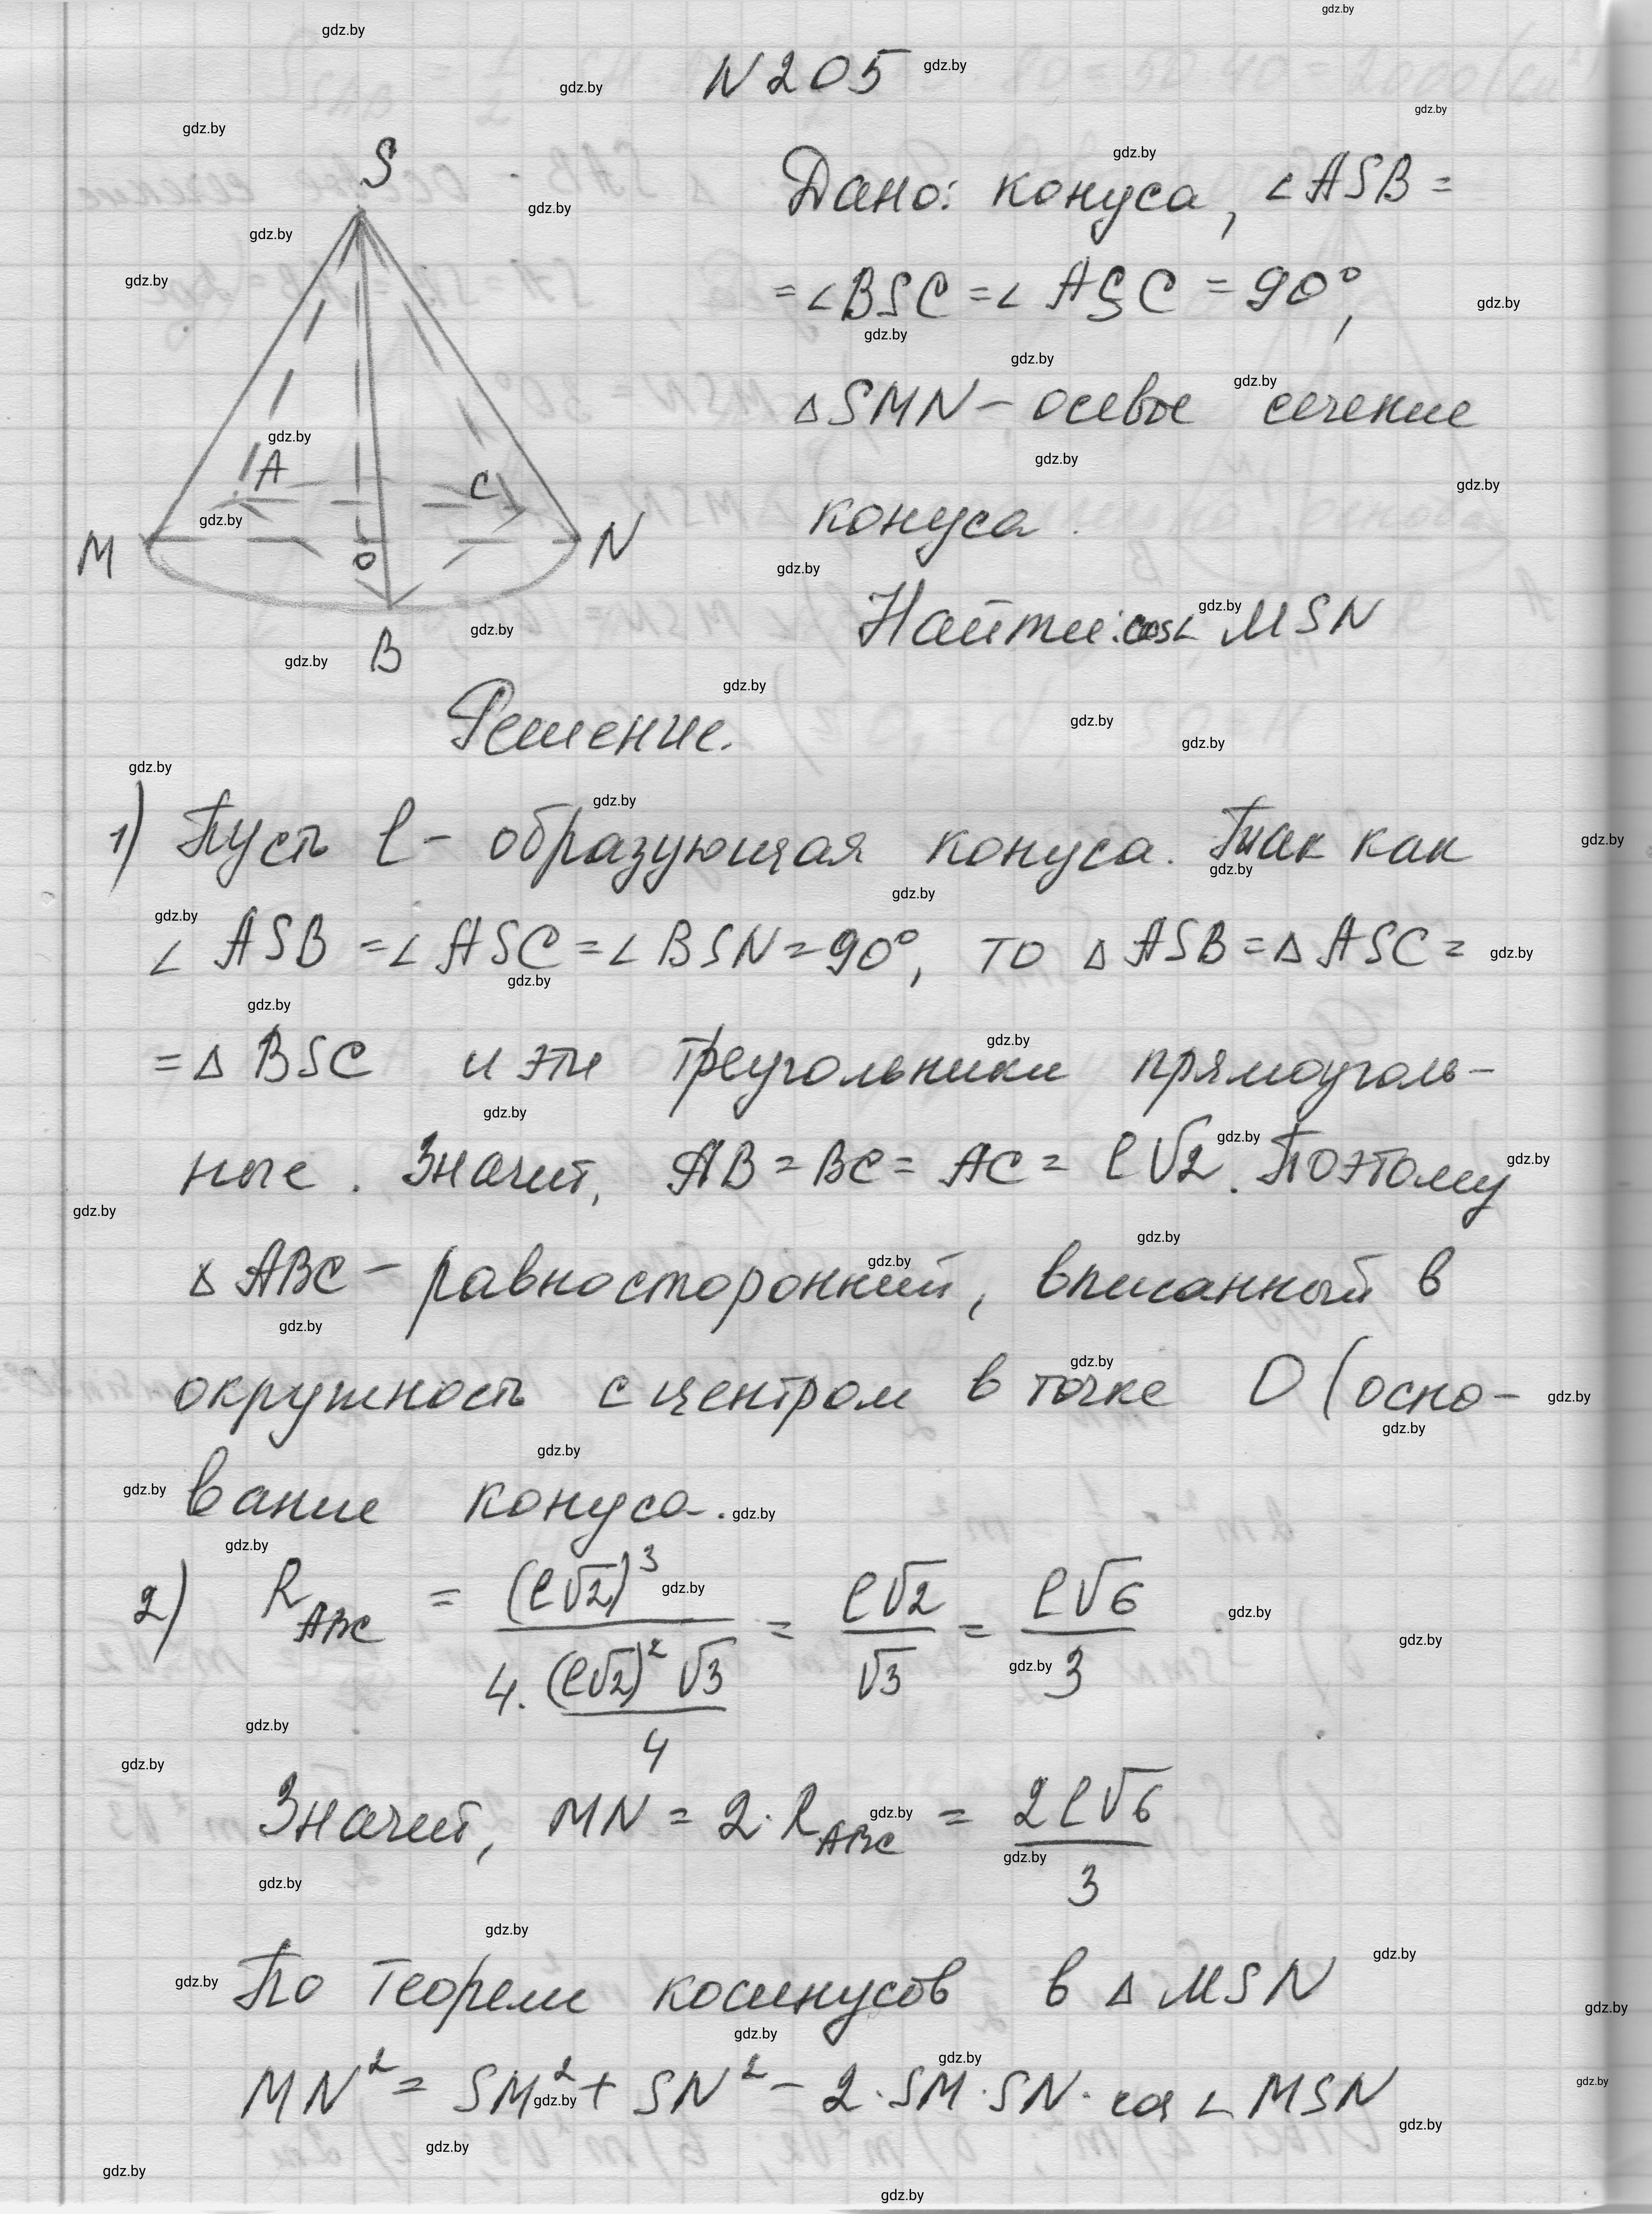 N 205
S
A
C
M
O
N
B
Дано: конуса, ∠ASB =
= ∠BSC = ∠ASC = 90°,
△SMN - осевое сечение
конуса.
Найти: cos∠MSN
Решение.
1) Пусть l - образующая конуса. Так как
∠ASB = ∠ASC = ∠BSN = 90°, то △ASB = △ASC =
= △BSC и эти треугольники прямоуголь-
ные. Значит, AB = BC = AC = l√2. Поэтому
△ABC - равносторонний, вписанный в
окружность с центром в точке O (осно-
вание конуса.
2) R_ABC = (l√2)³ / (4·(l√2)²√3/4) = l√2/√3 = l√6/3
Значит, MN = 2·R_ABC = 2l√6/3
По теореме косинусов в △MSN
MN² = SM² + SN² - 2·SM·SN·cos∠MSN
gdz.by